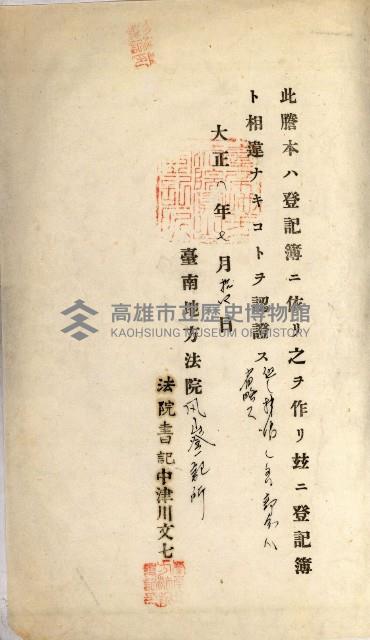 此謄本ハ登記簿ニ依リ之ヲ作リ玆ニ登記簿
ト相違ナキコトヲ認證ス
省略ス
大正八年七月 日
臺南地方法院鳳山登記所
法院書記中津川文七
高雄市立歷史博物館
KAOHSIUNG MUSEUM OF HISTORY